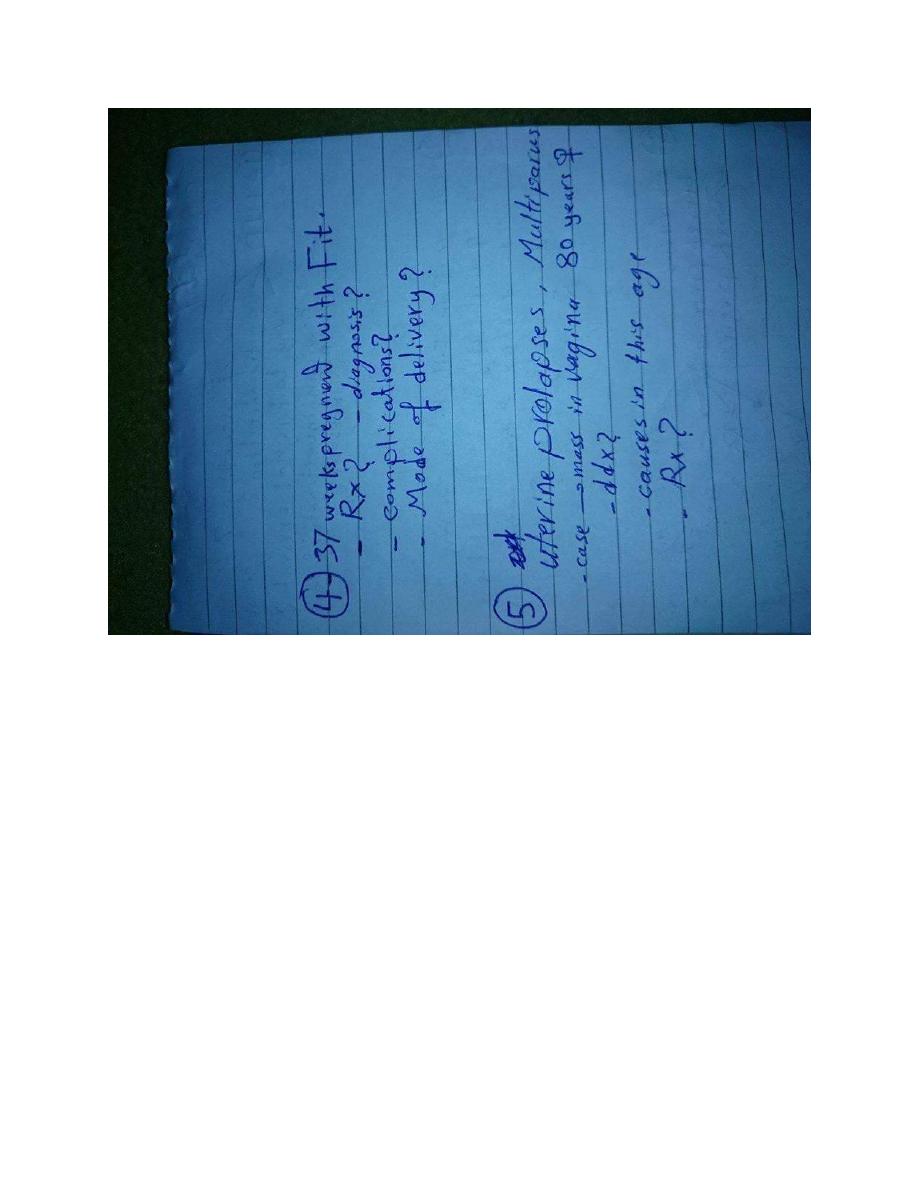 4- 37 weeks pregnend with Fit.
- Rx? - diagnosis?
- complications?
- Mode of delivery?
5
uterine prolapses, Multiparus
- case → mass in vagina 80 years ♀
- ddx?
- causes in this age
- Rx?